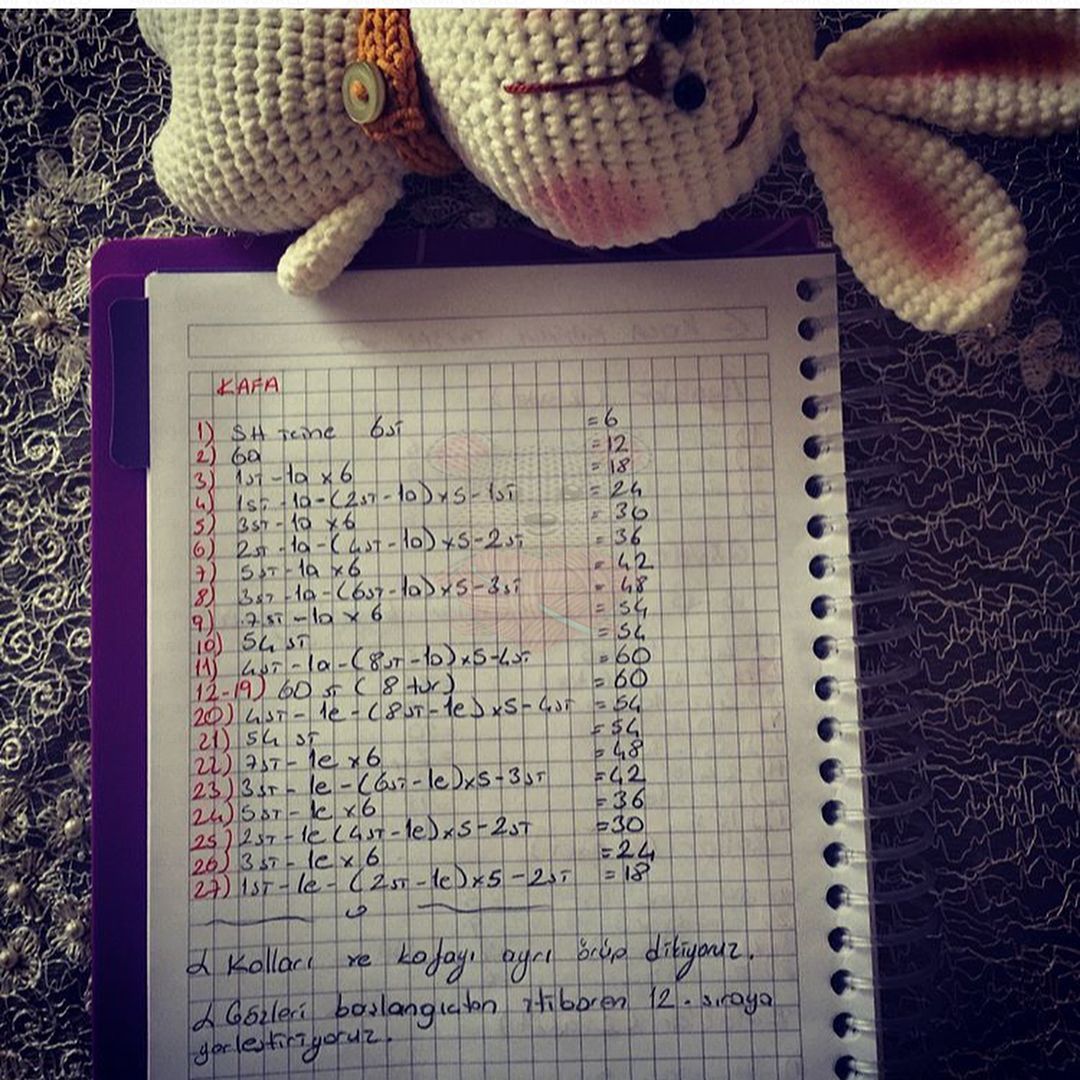 KAFA
1) SH içine 6ST = 6
2) 6a = 12
3) 1ST - 1a x 6 = 18
4) 1ST - 1a - (2ST - 1a) x 5 - 1ST = 24
5) 3ST - 1a x 6 = 30
6) 2ST - 1a - (4ST - 1a) x 5 - 2ST = 36
7) 5ST - 1a x 6 = 42
8) 3ST - 1a - (6ST - 1a) x 5 - 3ST = 48
9) 7ST - 1a x 6 = 54
10) 54 ST = 54
11) 4ST - 1a - (8ST - 1a) x 5 - 4ST = 60
12-19) 60 ST ( 8 tur) = 60
20) 4ST - 1e - (8ST - 1e) x 5 - 4ST = 54
21) 54 ST = 54
22) 7ST - 1e x 6 = 48
23) 3ST - 1e - (6ST - 1e) x 5 - 3ST = 42
24) 5ST - 1e x 6 = 36
25) 2ST - 1e (4ST - 1e) x 5 - 2ST = 30
26) 3ST - 1e x 6 = 24
27) 1ST - 1e - (2ST - 1e) x 5 - 2ST = 18
Kolları ve kafayı ayrı örüp dikiyoruz.
Gözleri başlangıctan itibaren 12. sıraya
yerleştiriyoruz.